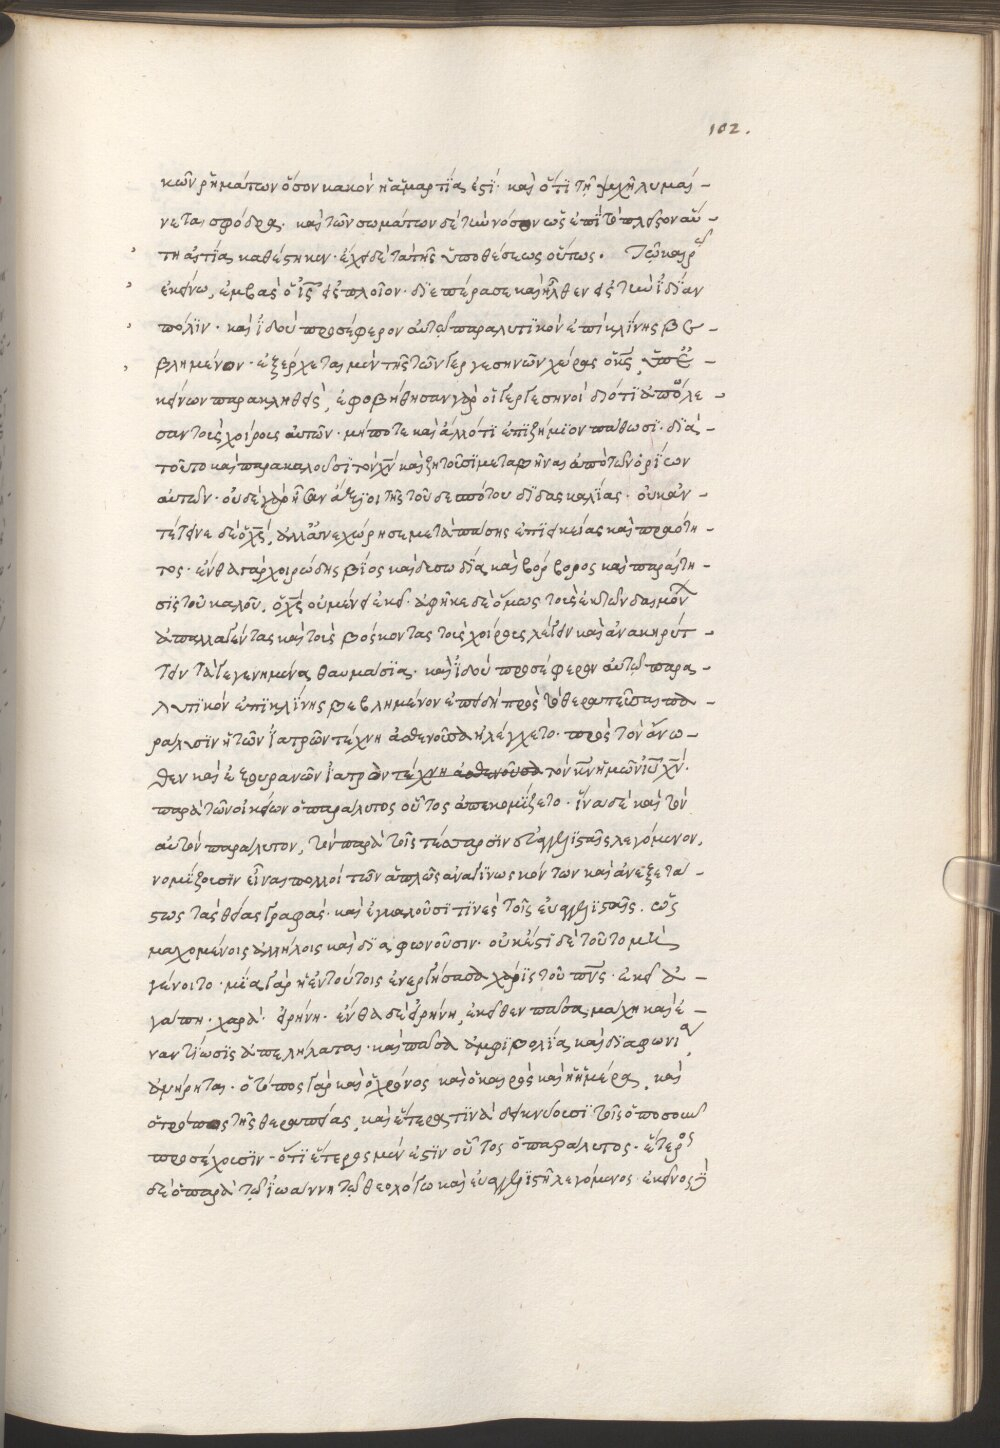 102.
κῶν ῥημάτων ὅσον κακὸν ἡ ἁμαρτία ἐστί· καὶ ὅτι τῇ ψυχῇ λυμαί-
νεται σφόδρα· καὶ τῶν σωμάτων δὲ τὴν νόσον ὡς ἐπὶ τὸ πλεῖστον αὕ-
τη αἰτία καθέστηκεν· ἔχει δὲ τὰ τῆς ὑποθέσεως οὕτως. Τῷ καιρῷ
ἐκείνω, ἐμβὰς ὁ ἰς̅ εἰς πλοῖον· διεπέρασε καὶ ἦλθεν εἰς τὴν ἰδίαν
πόλιν· καὶ ἰδοὺ προσέφερον αὐτῷ παραλυτικὸν ἐπὶ κλίνης βε-
βλημένον· ἐξέρχεται μὲν τῆς τῶν γεργεσηνῶν χώρας ὁ κς̅, ὑπ' ἐ-
κείνων παρακληθεὶς, ἐφοβήθησαν γὰρ οἱ γεργεσηνοὶ διότι ἀπόλε
σαν τοὺς χοίρους αὐτῶν· μήποτε καὶ ἄλλό τι ἐπιζήμιον πάθωσι· διὰ
τοῦτο καὶ παρακαλοῦσι τὸν χν̅ καὶ ζητοῦσι μεταβῆναι ἀπὸ τῶν ὁρίων
αὐτῶν· οὐδὲ γὰρ ἦσαν ἄξιοι τῆς τοῦ δεσπότου διδασκαλίας· οὐκ ἀν-
τέτεινε δὲ ὁ χς̅, ἀλλ' ἀνεχώρησε μετὰ πάσης ἐπιεικείας καὶ πραότη-
τος· ἔνθα γὰρ χοιρώδης βίος καὶ δυσωδία καὶ βόρβορος καὶ παραίτη-
σις τοῦ καλοῦ, ὁ χς̅ οὐ μένει ἐκεῖ· ἀφῆκε δὲ ὅμως τοὺς ἐκ τῶν δαιμόνων
ἀπαλλαγέντας καὶ τοὺς βόσκοντας τοὺς χοίρους λέγειν καὶ ἀνακηρύτ-
τειν τὰ γεγενημένα θαυμάσια· καὶ ἰδοὺ προσέφερον αὐτῷ παρα-
λυτικὸν ἐπὶ κλίνης βεβλημένον ἐπειδὴ πρὸς τὸ θεραπεῦσαι τὸ πα-
ράλυσιν ἡ τῶν ἰατρῶν τέχνη ἀσθενοῦσα ἠλέγχετο· πρὸς τὸν ἄνω-
θεν καὶ ἐξ οὐρανῶν ἰατρὸν τέχνη ἀσθενοῦσα τὸν κν̅ ἡμῶν ιν̅ χν̅·
παρὰ τῶν οἰκείων ὁ παράλυτος οὗτος ἀπεκομίζετο· ἵνα δὲ καὶ τὸν
αὐτὸν παράλυτον, τὸν παρὰ τοῖς τέσσαρσιν εὐαγγελισταῖς λεγόμενον,
νομίζουσιν εἶναι πολλοὶ τῶν ἁπλῶς ἀναγινωσκόντων καὶ ἀνεξετά-
στως τὰς θείας γραφάς· καὶ ἐγκαλοῦσι τινὲς τοῖς εὐαγγελισταῖς. ὡς
μαχομένοις ἀλλήλοις καὶ διαφωνοῦσιν· οὐκ ἔστι δὲ τοῦτο μὴ
γένοιτο· μία γὰρ ἡ ἐν τούτοις ἐνεργήσασα χάρις τοῦ πνς̅· ἐκεῖ ἀ-
γάπη· χαρὰ· εἰρήνη· ἔνθα δὲ εἰρήνη, ἐκεῖθεν πᾶσα μάχη καὶ ἐ-
ναντίωσις ἀπελήλαται· καὶ πᾶσα ἀμφιβολία καὶ διαφωνία
ἀνήρηται· ὁ τόπος γὰρ καὶ ὁ χρόνος καὶ ὁ καιρὸς καὶ ἡ ἡμέρα, καὶ
ὁ τρόπος τῆς θεραπείας, καὶ ἕτερα τινὰ δεικνύουσι τοῖς ὁπωσοῦν
προσέχουσιν· ὅτι ἕτερος μὲν ἐστιν οὗτος ὁ παράλυτος· ἕτερος
δὲ ὁ παρὰ τῷ ἰωάννη τῷ θεολόγω καὶ εὐαγγελιστῆ λεγόμενος· ἐκεῖνος